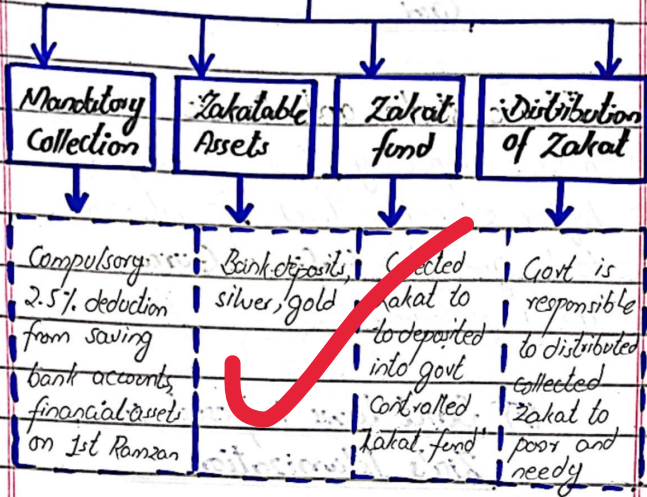 Mandatory
Collection
Zakatable
Assets
Zakat
fund
Distribution
of Zakat
Compulsory
2.5% deduction
from saving
bank accounts,
financial assets
on 1st Ramzan
Bank deposits,
silver, gold
Zakat to
to deposited
into govt
controlled
Zakat fund
Govt is
responsible
to distributed
collected
Zakat to
poor and
needy